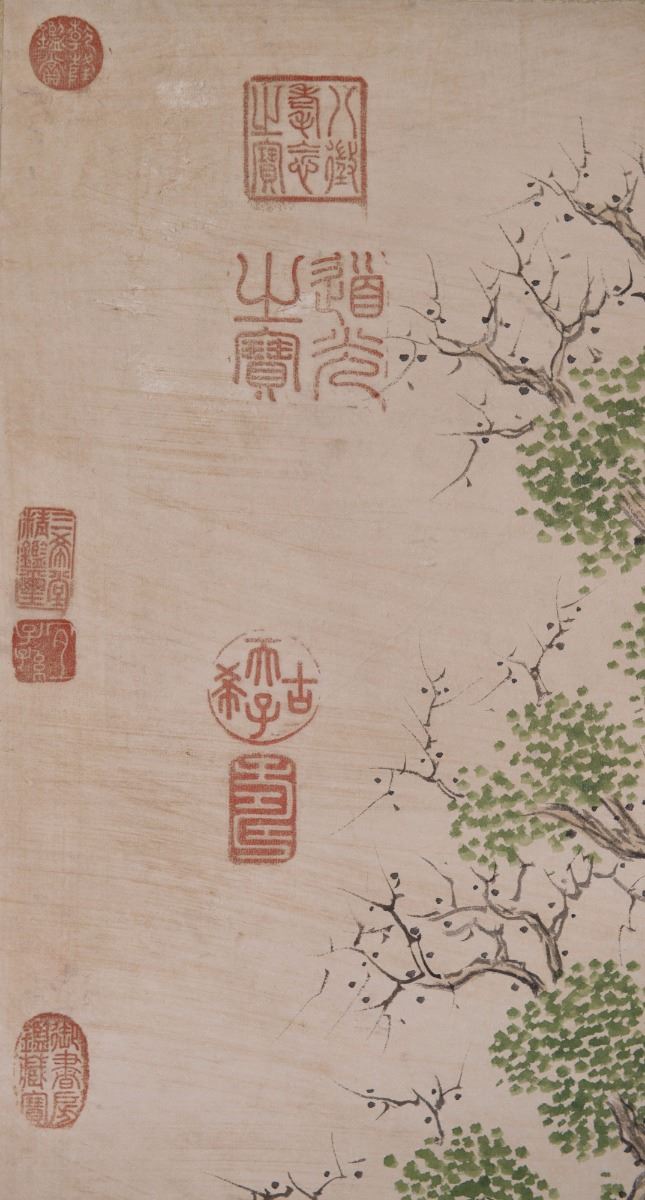 乾隆鑑賞
八徵耄念之寶
道光之寶
三希堂精鑑璽
宜子孫
古希天子
壽
御書房鑑藏寶